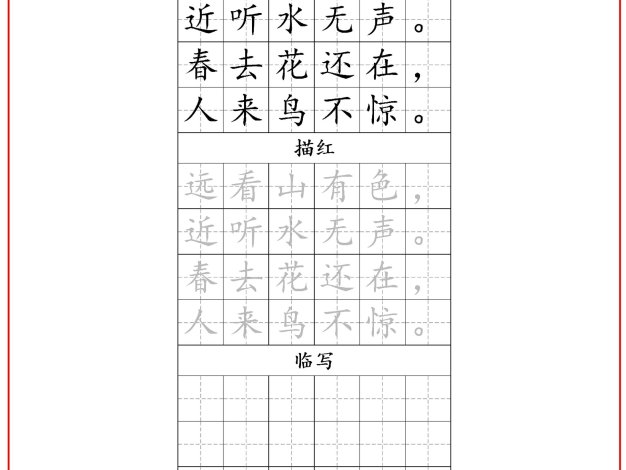 近听水无声。
春去花还在，
人来鸟不惊。
描红
远看山有色，
近听水无声。
春去花还在，
人来鸟不惊。
临写